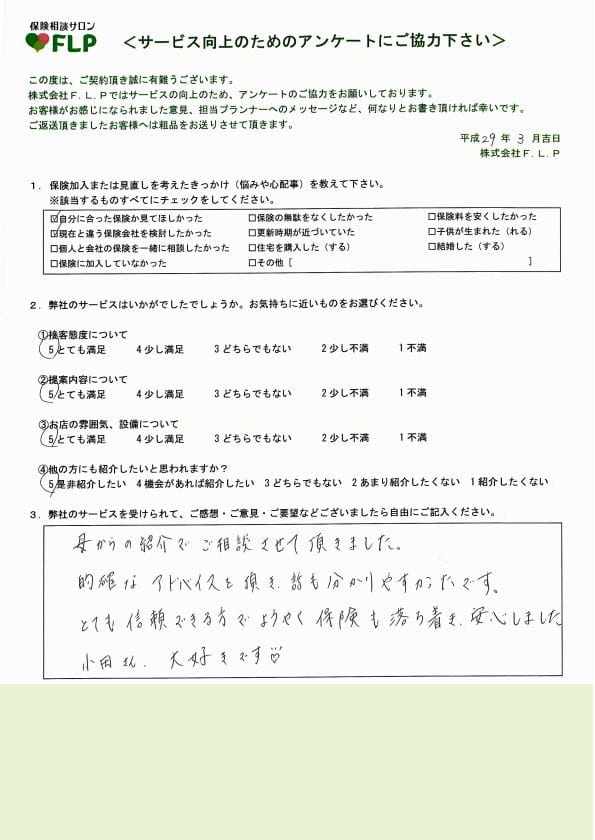 保険相談サロン
FLP
＜サービス向上のためのアンケートにご協力下さい＞
この度は、ご契約頂き誠に有難うございます。
株式会社F.L.Pではサービスの向上のため、アンケートのご協力をお願いしております。
お客様がお感じになられました意見、担当プランナーへのメッセージなど、何なりとお書き頂ければ幸いです。
ご返送頂きましたお客様へは粗品をお送りさせて頂きます。
平成29年 3 月吉日
株式会社F.L.P
1．保険加入または見直しを考えたきっかけ（悩みや心配事）を教えて下さい。
※該当するものすべてにチェックをしてください。
☑自分に合った保険か見てほしかった □保険の無駄をなくしたかった □保険料を安くしたかった
☑現在と違う保険会社を検討したかった □更新時期が近づいていた □子供が生まれた（れる）
□個人と会社の保険を一緒に相談したかった □住宅を購入した（する） □結婚した（する）
□保険に加入していなかった □その他［ ］
2．弊社のサービスはいかがでしたでしょうか。お気持ちに近いものをお選びください。
①接客態度について
5とても満足 4少し満足 3どちらでもない 2少し不満 1不満
②提案内容について
5とても満足 4少し満足 3どちらでもない 2少し不満 1不満
③お店の雰囲気、設備について
5とても満足 4少し満足 3どちらでもない 2少し不満 1不満
④他の方にも紹介したいと思われますか？
5是非紹介したい 4機会があれば紹介したい 3どちらでもない 2あまり紹介したくない 1紹介したくない
3．弊社のサービスを受けられて、ご感想・ご意見・ご要望などございましたら自由にご記入ください。
母からの紹介でご相談させて頂きました。
的確なアドバイスを頂き、話も分かりやすかったです。
とても信頼できる方でようやく保険も落ち着き、安心しました
小田さん、大好きです♡